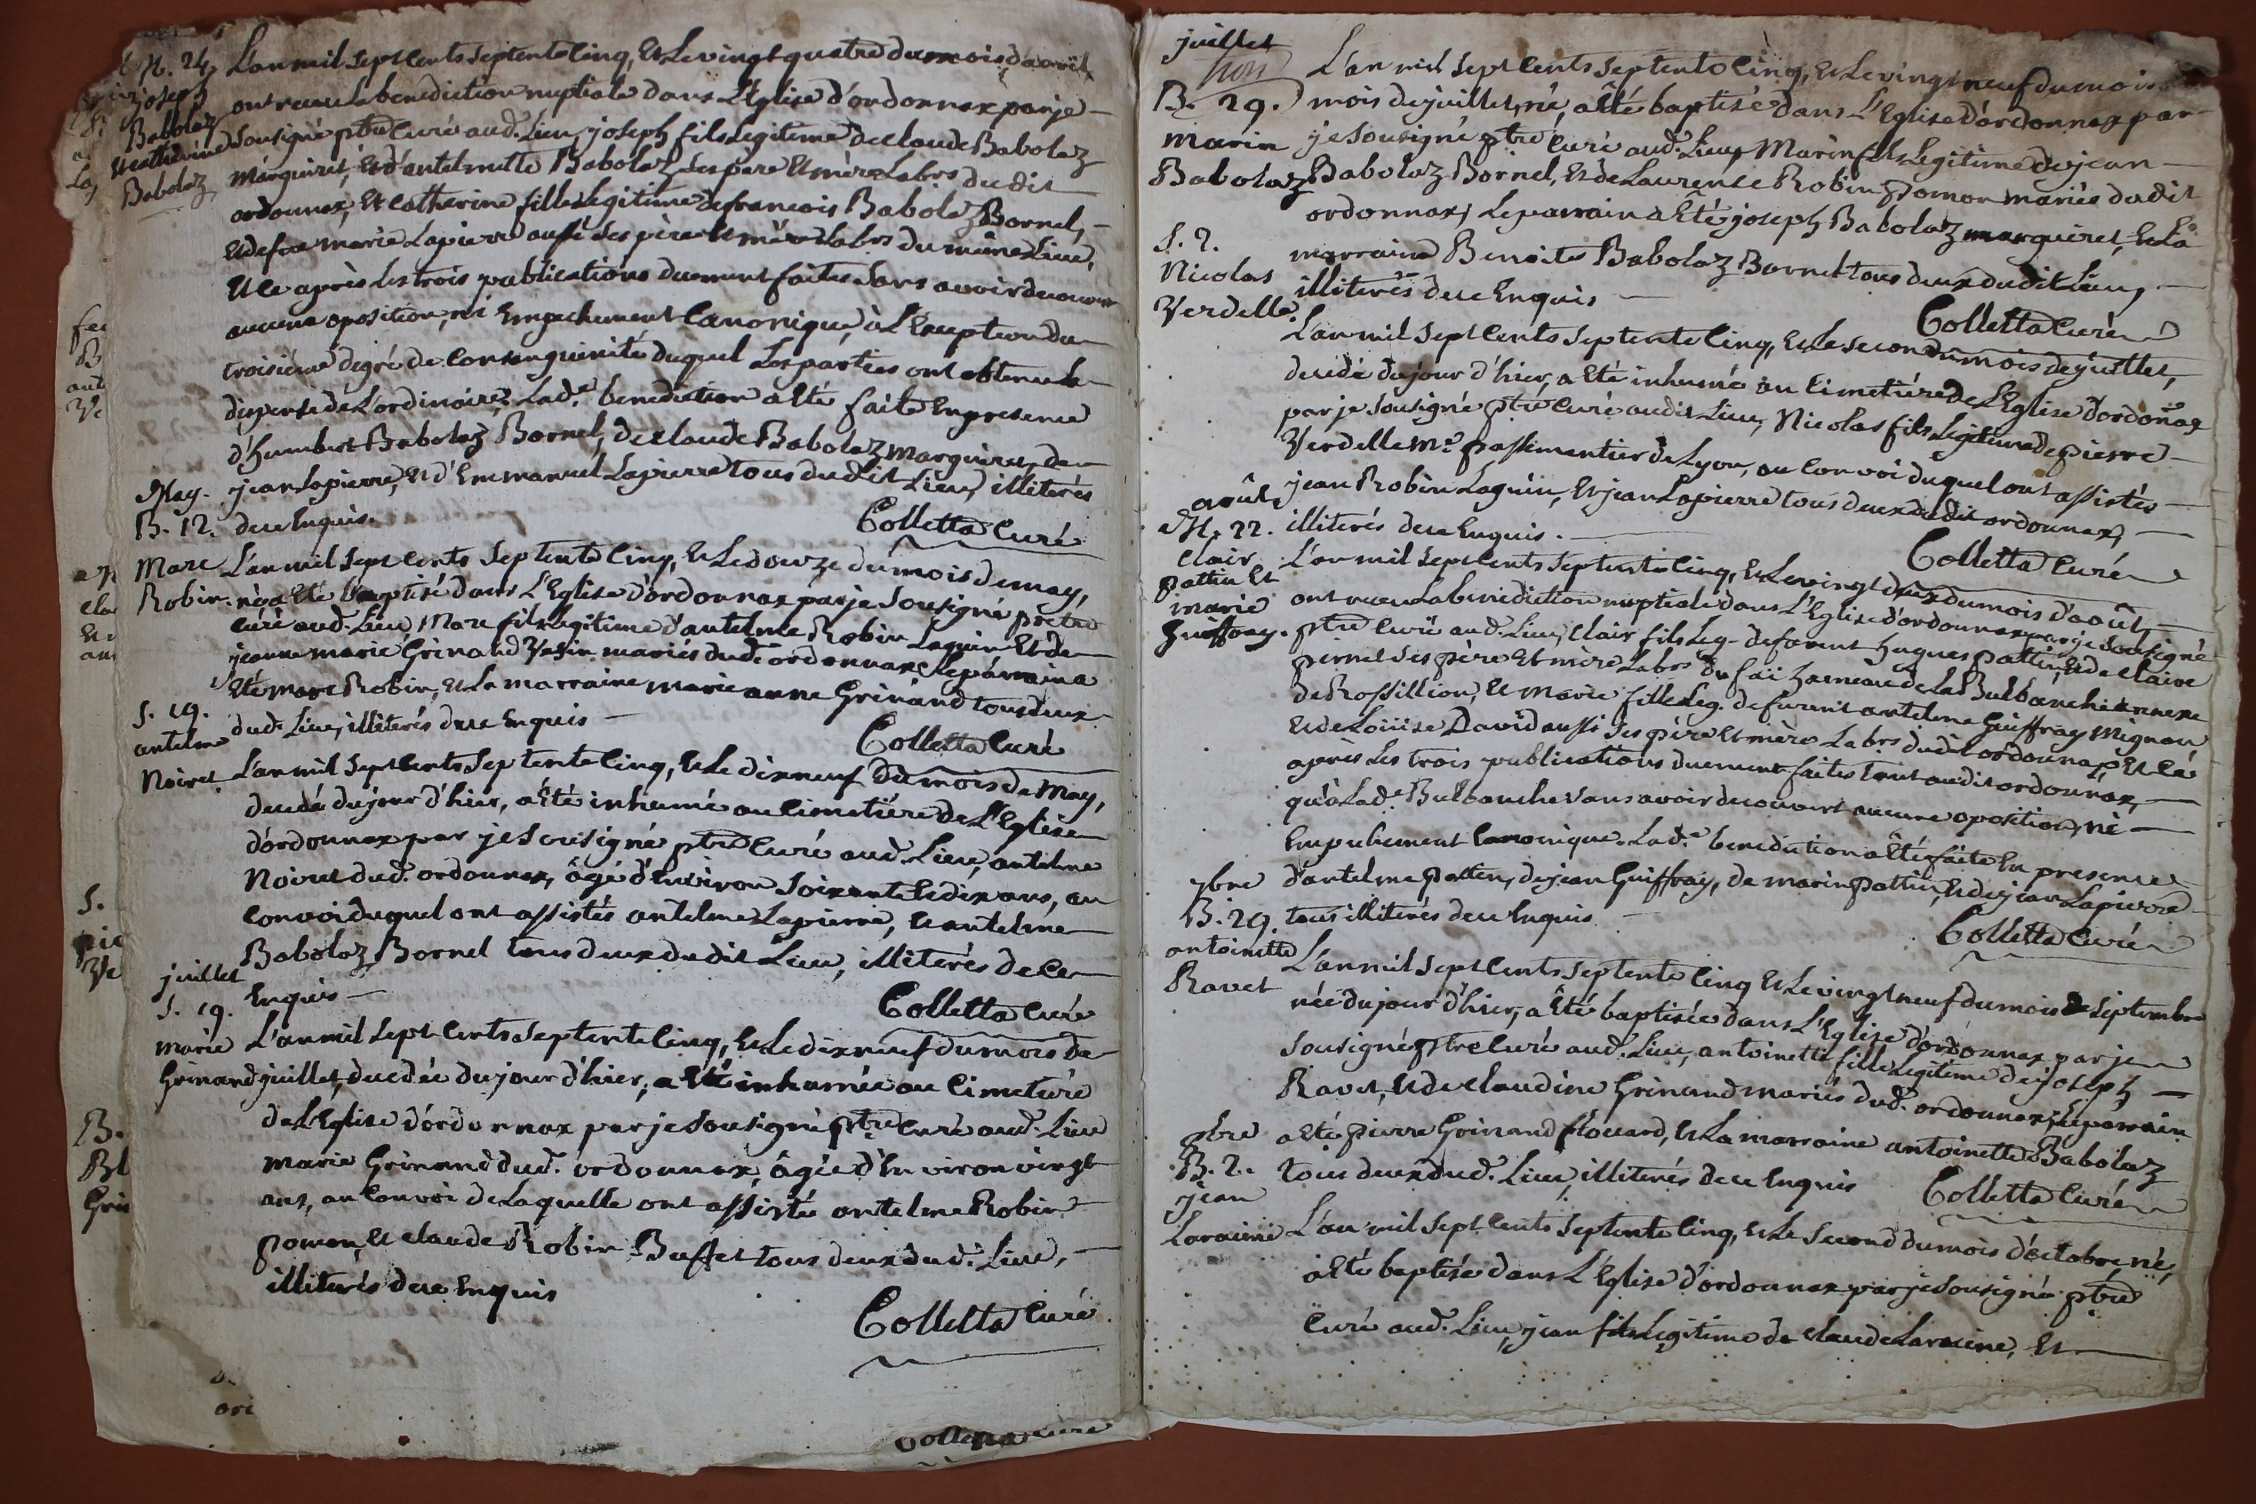 M. 24
joseph
Babolaz
et catherine
Babolaz
L'an mil sept cents septente cinq, et le vingt quatre du mois d'avril
ont receu la benediction nuptiale dans l'Eglise d'ordonnax par je
sousigné ptre curé aud. lieu, joseph fils legitime de claude Babolaz
marquiret, et d'antelmette Babolaz ses père et mère labrs dudit
ordonnax, et catherine fille legitime de francois Babolaz Bornel,
et de fœ marie Lapierre aussi ses père et mère labrs du même lieu,
et ce après les trois publications duement faites sans avoir decouvert
aucune oposition, ni Empechement Canonique, à l'Exception du
troisième degré de Consenguinité duquel les parties ont obtenu la
dispense de l'ordinaire, Lade benediction a Eté faite En presence
d'humbert Babolaz Bornel, de claude Babolaz marquiret, de
jean Lapierre, et d'Emmanuel Lapierre tous dudit Lieu, illiterés
de ce Enquis.
Colletta Curé
May.
B. 12.
Marc
Robin.
L'an mil sept cents septente cinq, et le douze du mois de may,
né, a Eté baptisé dans l'Eglise d'ordonnax par je sousigné pretre
curé aud. lieu, Marc fils legitime d'antelme Robin Laguin et de
jeanne marie Grinand Vesin mariés dud. ordonnax, le parrain a
Eté marc Robin, et la marraine marie anne Grinand tous deux
dud. Lieu, illiterés de ce Enquis
Colletta Curé
S. 19.
antelme
Noiret
L'an mil sept cents septente cinq, et le dixneuf du mois de May,
decedé du jour d'hier, a Eté inhumé au cimetière de l'Eglise
d'ordonnax par je sousigné ptre curé aud. Lieu, antelme
Noiret dud. ordonnax, âgé d'Environ soixante et dix ans, au
convoi duquel ont assistés antelme Lapierre, et antelme
Babolaz Bornel tous deux dudit Lieu, illiterés de ce
Enquis
Colletta Curé
juillet
S. 19.
marie
Grinand
L'an mil sept cents septente cinq, et le dixneuf du mois de
juillet, decedée du jour d'hier, a Eté inhumée au cimetière
de l'Eglise d'ordonnax par je sousigné ptre curé aud. Lieu
marie Grinand dud. ordonnax, âgée d'Environ vingt
ans, au convoi de laquelle ont assistés antelme Robin
pomon, et claude Robin Buffet tous deux dud. Lieu,
illiterés de ce Enquis
Colletta Curé
juillet
B. 29.
marin
Babolaz
L'an mil sept cents septente cinq, et le vingt neuf du mois
mois de juillet, né, a été baptisé dans l'Eglise d'ordonnax par
je sousigné ptre curé aud. Lieu, Marin fils legitime de jean
Babolaz Bornel, et de Laurence Robin pomon mariés dudit
ordonnax; Le parrain a Eté joseph Babolaz marquiret, et la
marraine Benoite Babolaz Bornel tous deux dudit Lieu,
illiterés de ce Enquis
Colletta Curé
S. 2.
Nicolas
Verdelle.
L'an mil sept cents septente cinq, et le second du mois de juillet,
decedé du jour d'hier, a Eté inhumé au Cimetière de l'Eglise d'ordonax
par je sousigné ptre curé audit Lieu, Nicolas fils legitime de pierre
Verdelle Me passementier de Lyon, au Convoi duquel ont assistés
jean Robin Laguin, et jean Lapierre tous deux dudit ordonnax,
illiterés de ce Enquis.
Colletta Curé
août
M. 22.
clair
pattin et
marie
guiffray.
L'an mil sept cents septente cinq, et le vingt deux du mois d'août,
ont receu la benediction nuptiale dans l'Eglise d'ordonnax par je sousigné
ptre curé aud. Lieu, clair fils leg. de furent hugues pattin, et de claire
pernet ses père et mère labrs du fai hameau de la Bulbanche annexe
de Rossillion, et marie fille leg. de furent antelme Guiffray Mignon
et de Loüise David aussi ses père et mère labrs dudit ordonnax et ce
après les trois publications duement faites tant audit ordonnax,
qu'à lade Bulbanche sans avoir decouvert aucune oposition, ni
Empechement canonique. Lade benediction a Eté faite En presence
d'antelme pattin, de jean Guiffray, de marin pattin, et de jean Lapierre
tous illiterés de ce Enquis
Colletta Curé
7bre
B. 29.
antoinette
Ravet
L'an mil sept cents septente cinq et le vingt neuf du mois de septembre
née du jour d'hier, a Eté baptisée dans l'Eglise d'ordonnax par je
sousigné ptre curé aud. Lieu, antoinette fille legitime de joseph
Ravet, et de claudine Grinand mariés dud. ordonnax; le parrain
a Eté pierre Grinand flouard, et la marraine antoinette Babolaz
tous deux dud. Lieu, illiterés de ce Enquis
Colletta Curé
8bre
B. 2.
jean
Laracine
L'an mil sept cents septente cinq, et le second du mois d'octobre, né,
a Eté baptisé dans l'Eglise d'ordonnax par je sousigné ptre
curé aud. Lieu, jean fils legitime de claude Laracine, et